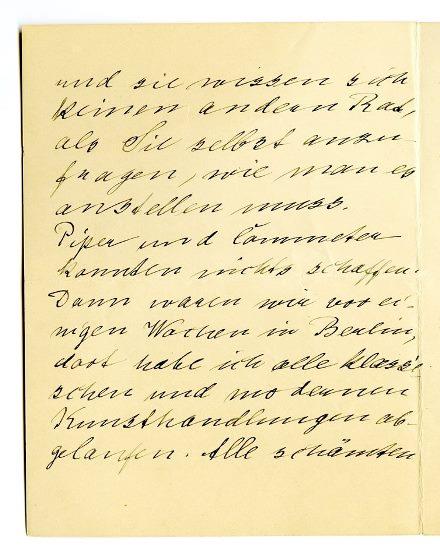 und sie wissen sich
keinen andern Rat,
als Sie selbst anzu
fragen, wie man es
anstellen muss.
Piper und Commeter
konnten nichts schaffen.
Dann waren wir vor ei-
nigen Wochen in Berlin,
dort habe ich alle klassi-
schen und modernen
Kunsthandlungen ab-
gelaufen. Alle schämten